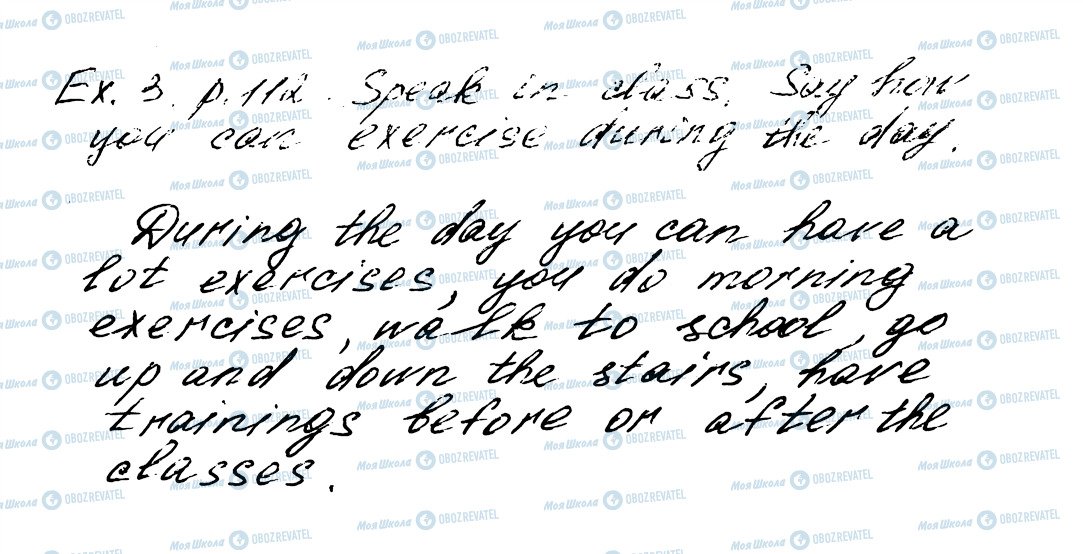 Ex. 3. p. 112. Speak in class. Say how
you can exercise during the day.
During the day you can have a
lot exercises, you do morning
exercises, walk to school, go
up and down the stairs, have
trainings before or after the
classes.